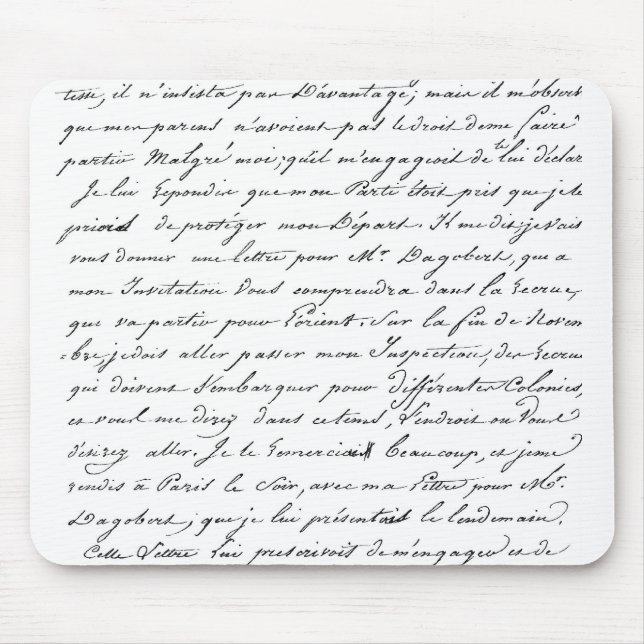 tesse, il n'insista pas D'avantage; mais il m'observ
que mes parens n'avoient pas le droit de me faire
partir Malgré moi; qu'il m'engageoit de te lui déclar
Je lui Repondis que mon Parti étoit pris que je le
priois de protéger mon Départ. Il me dit; je vais
vous donner une Lettre pour Mr. Dagobert, que a
mon Invitation Vous comprendra dans la Recrue,
qui va partir pour L'orient. Sur la fin de Novem
=bre, je dois aller passer mon Inspection, des Recrue
qui doivent S'embarquer pour différentes Colonies,
et vous me direz dans ce tems, L'endroit ou Vous
désirez aller. Je le Remerciai Beaucoup, et je me
rendis à Paris le Soir, avec ma Lettre pour Mr.
Dagobert; que je lui présentois le lendemain.
Cette Lettre Lui prescrivoit de m'engager et de